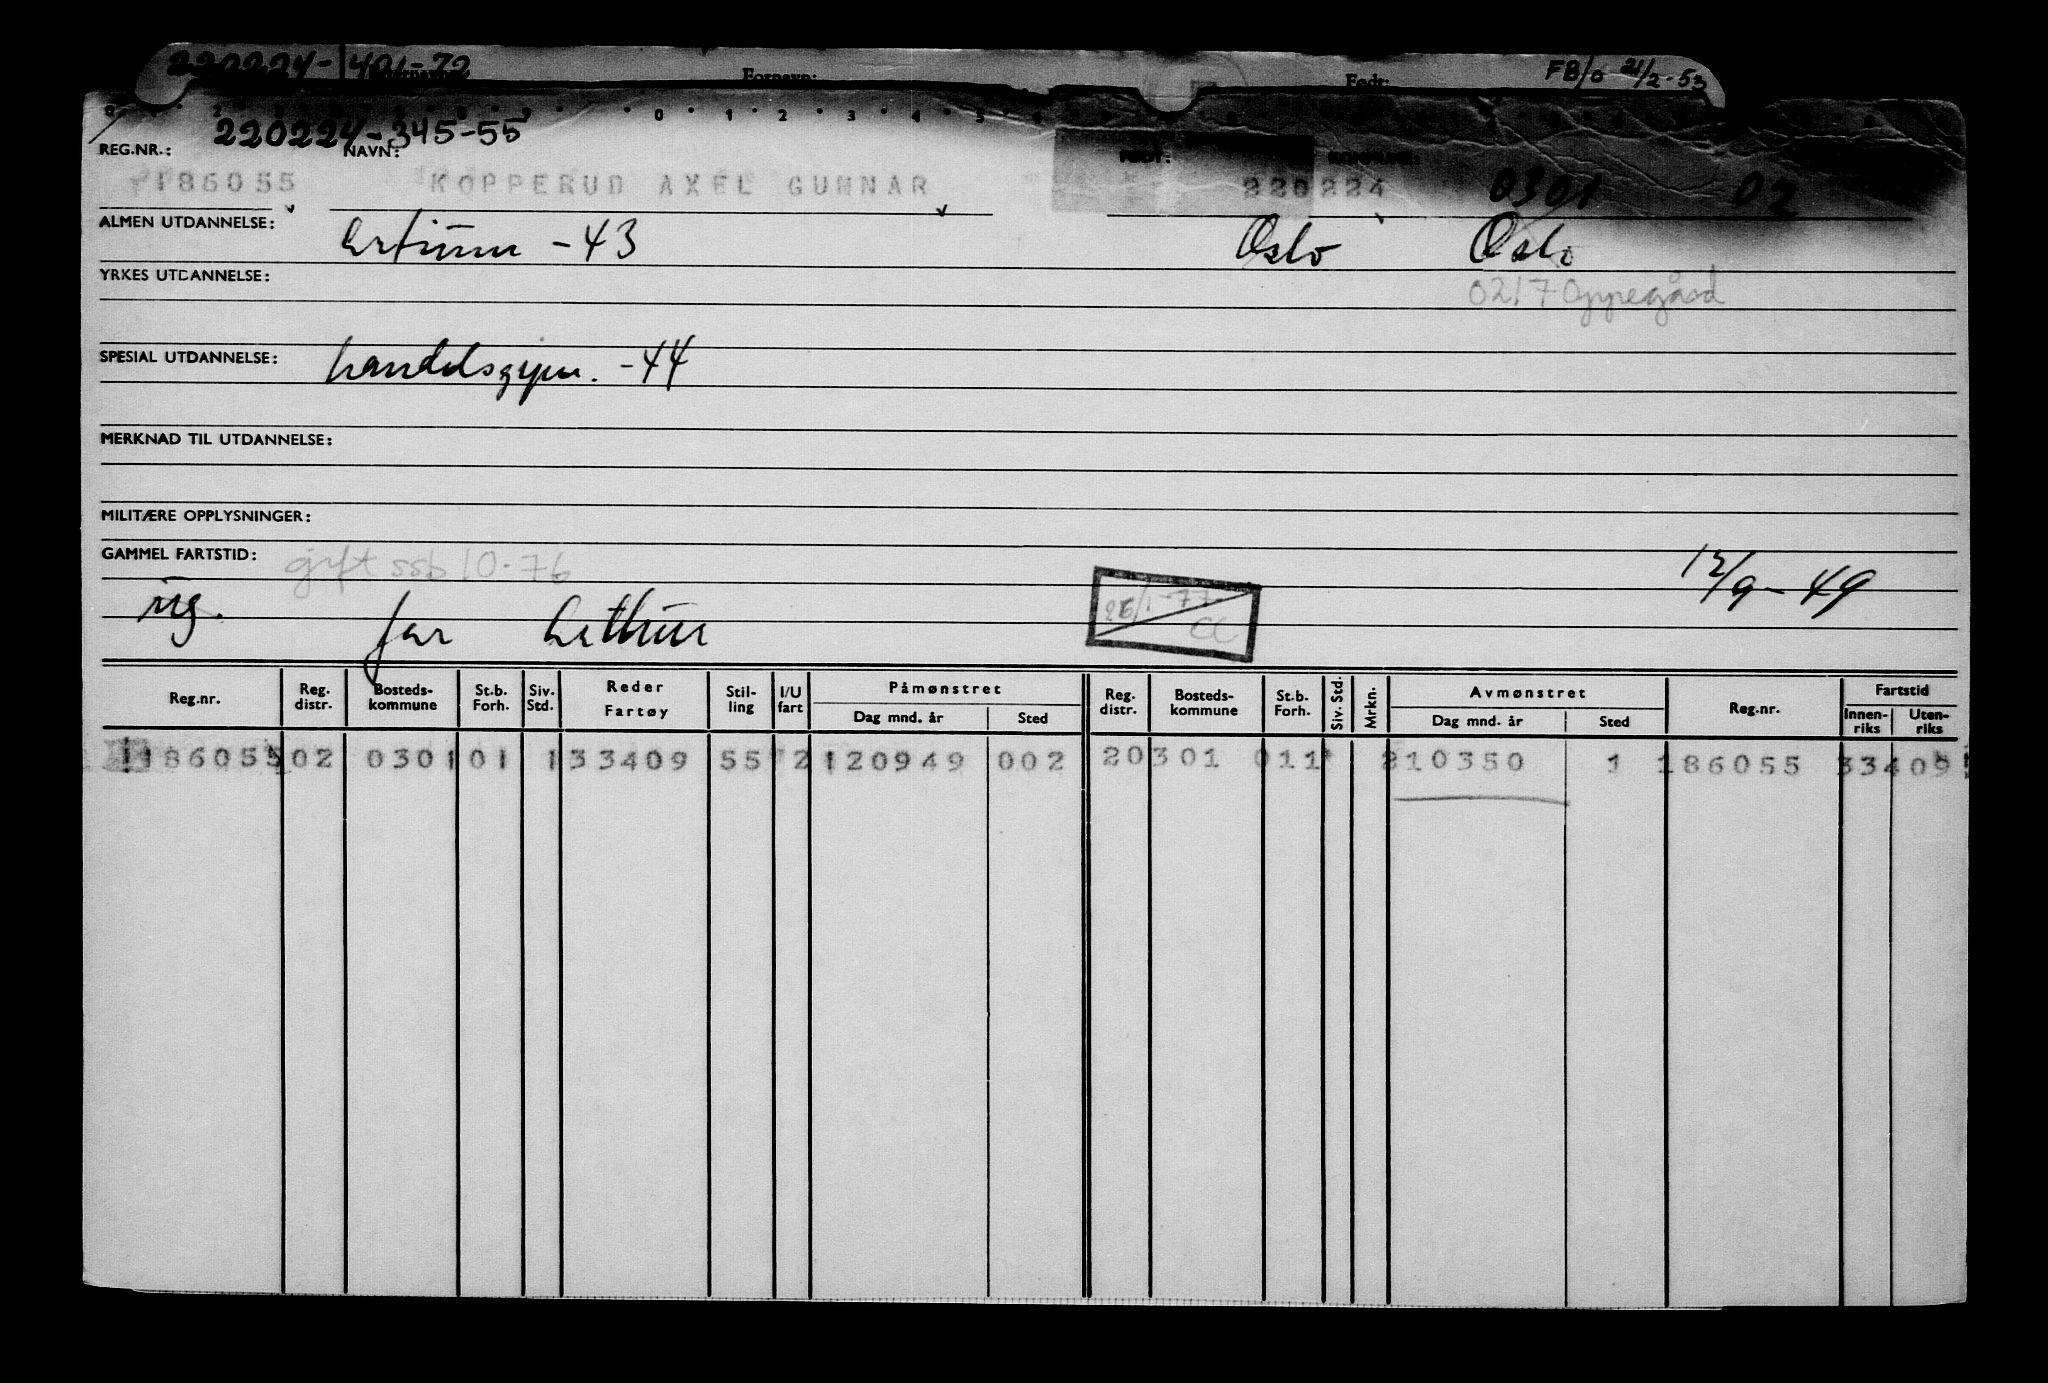 220224-401-72 Fornavn: Født: FB/o 21/2-53
0 1 2 3 4 5
220224-345-55
REG.NR.: NAVN: FØDT: KOMMUNE:
186055 KOPPERUD AXEL GUNNAR 220224 0301 02
ALMEN UTDANNELSE: artium -43 Oslo Oslo
YRKES UTDANNELSE: 0217 Oppegård
SPESIAL UTDANNELSE: handelsgym. -44
MERKNAD TIL UTDANNELSE:
MILITÆRE OPPLYSNINGER:
GAMMEL FARTSTID: gift ssb 10-76 12/9-49
ug. far Arthur 25/1-77 CC
Reg.nr. Reg. distr. Bosteds-kommune St.b. Forh. Siv. Std. Reder Fartøy Stil-ling I/U fart Påmønstret Dag mnd. år Sted Reg. distr. Bosteds-kommune St.b. Forh. Siv. Std. Mrkn. Avmønstret Dag mnd. år Sted Reg.nr. Fartstid Innen-riks Uten-riks
186055 02 0301 01 1 33409 55 2 120949 002 20301 011 210350 1 186055 33409